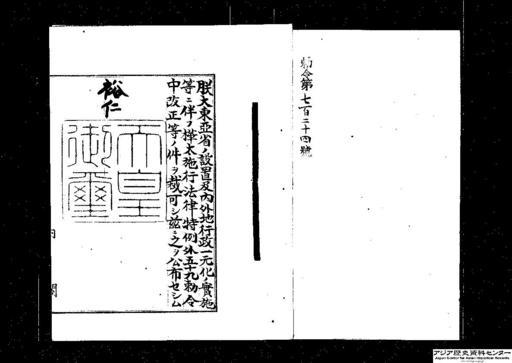 勅令第七百二十四號
朕大東亞省ノ設置及內外地行政一元化ノ實施
等ニ伴フ樺太施行法律特例外五十九勅令
中改正等ノ件ヲ裁可シ茲ニ之ヲ公布セシム
裕仁
天皇御璽
內閣
アジア歴史資料センター
Japan Center for Asian Historical Records